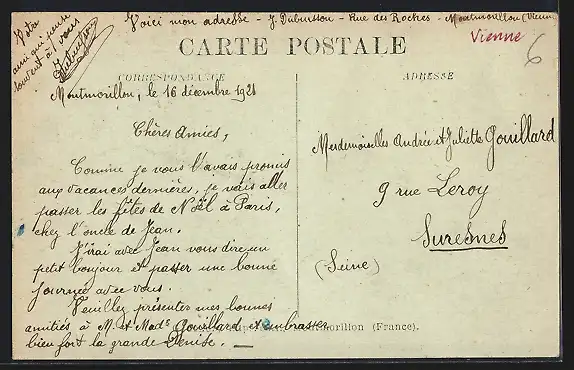 Voici mon adresse - J. Dubuisson - Rue des Roches - Montmorillon (Vienne
Vienne
6
Votre
ami qui pense
souvent à vous
JDubuisson
CARTE POSTALE
CORRESPONDANCE
ADRESSE
Montmorillon, le 16 décembre 1921
Chères Amies,
Comme je vous l'avais promis
aux vacances dernières, je vais aller
passer les fêtes de Noël à Paris,
chez l'oncle de Jean.
J'irai avec Jean vous dire un
petit bonjour et passer une bonne
journée avec vous.
Veuillez présenter mes bonnes
amitiés à M. et Made Gouillard et embrasser
bien fort la grande Denise.
Mesdemoiselles Andrée et Juliette Gouillard
9 rue Leroy
Suresnes
(Seine)
Montmorillon (France).